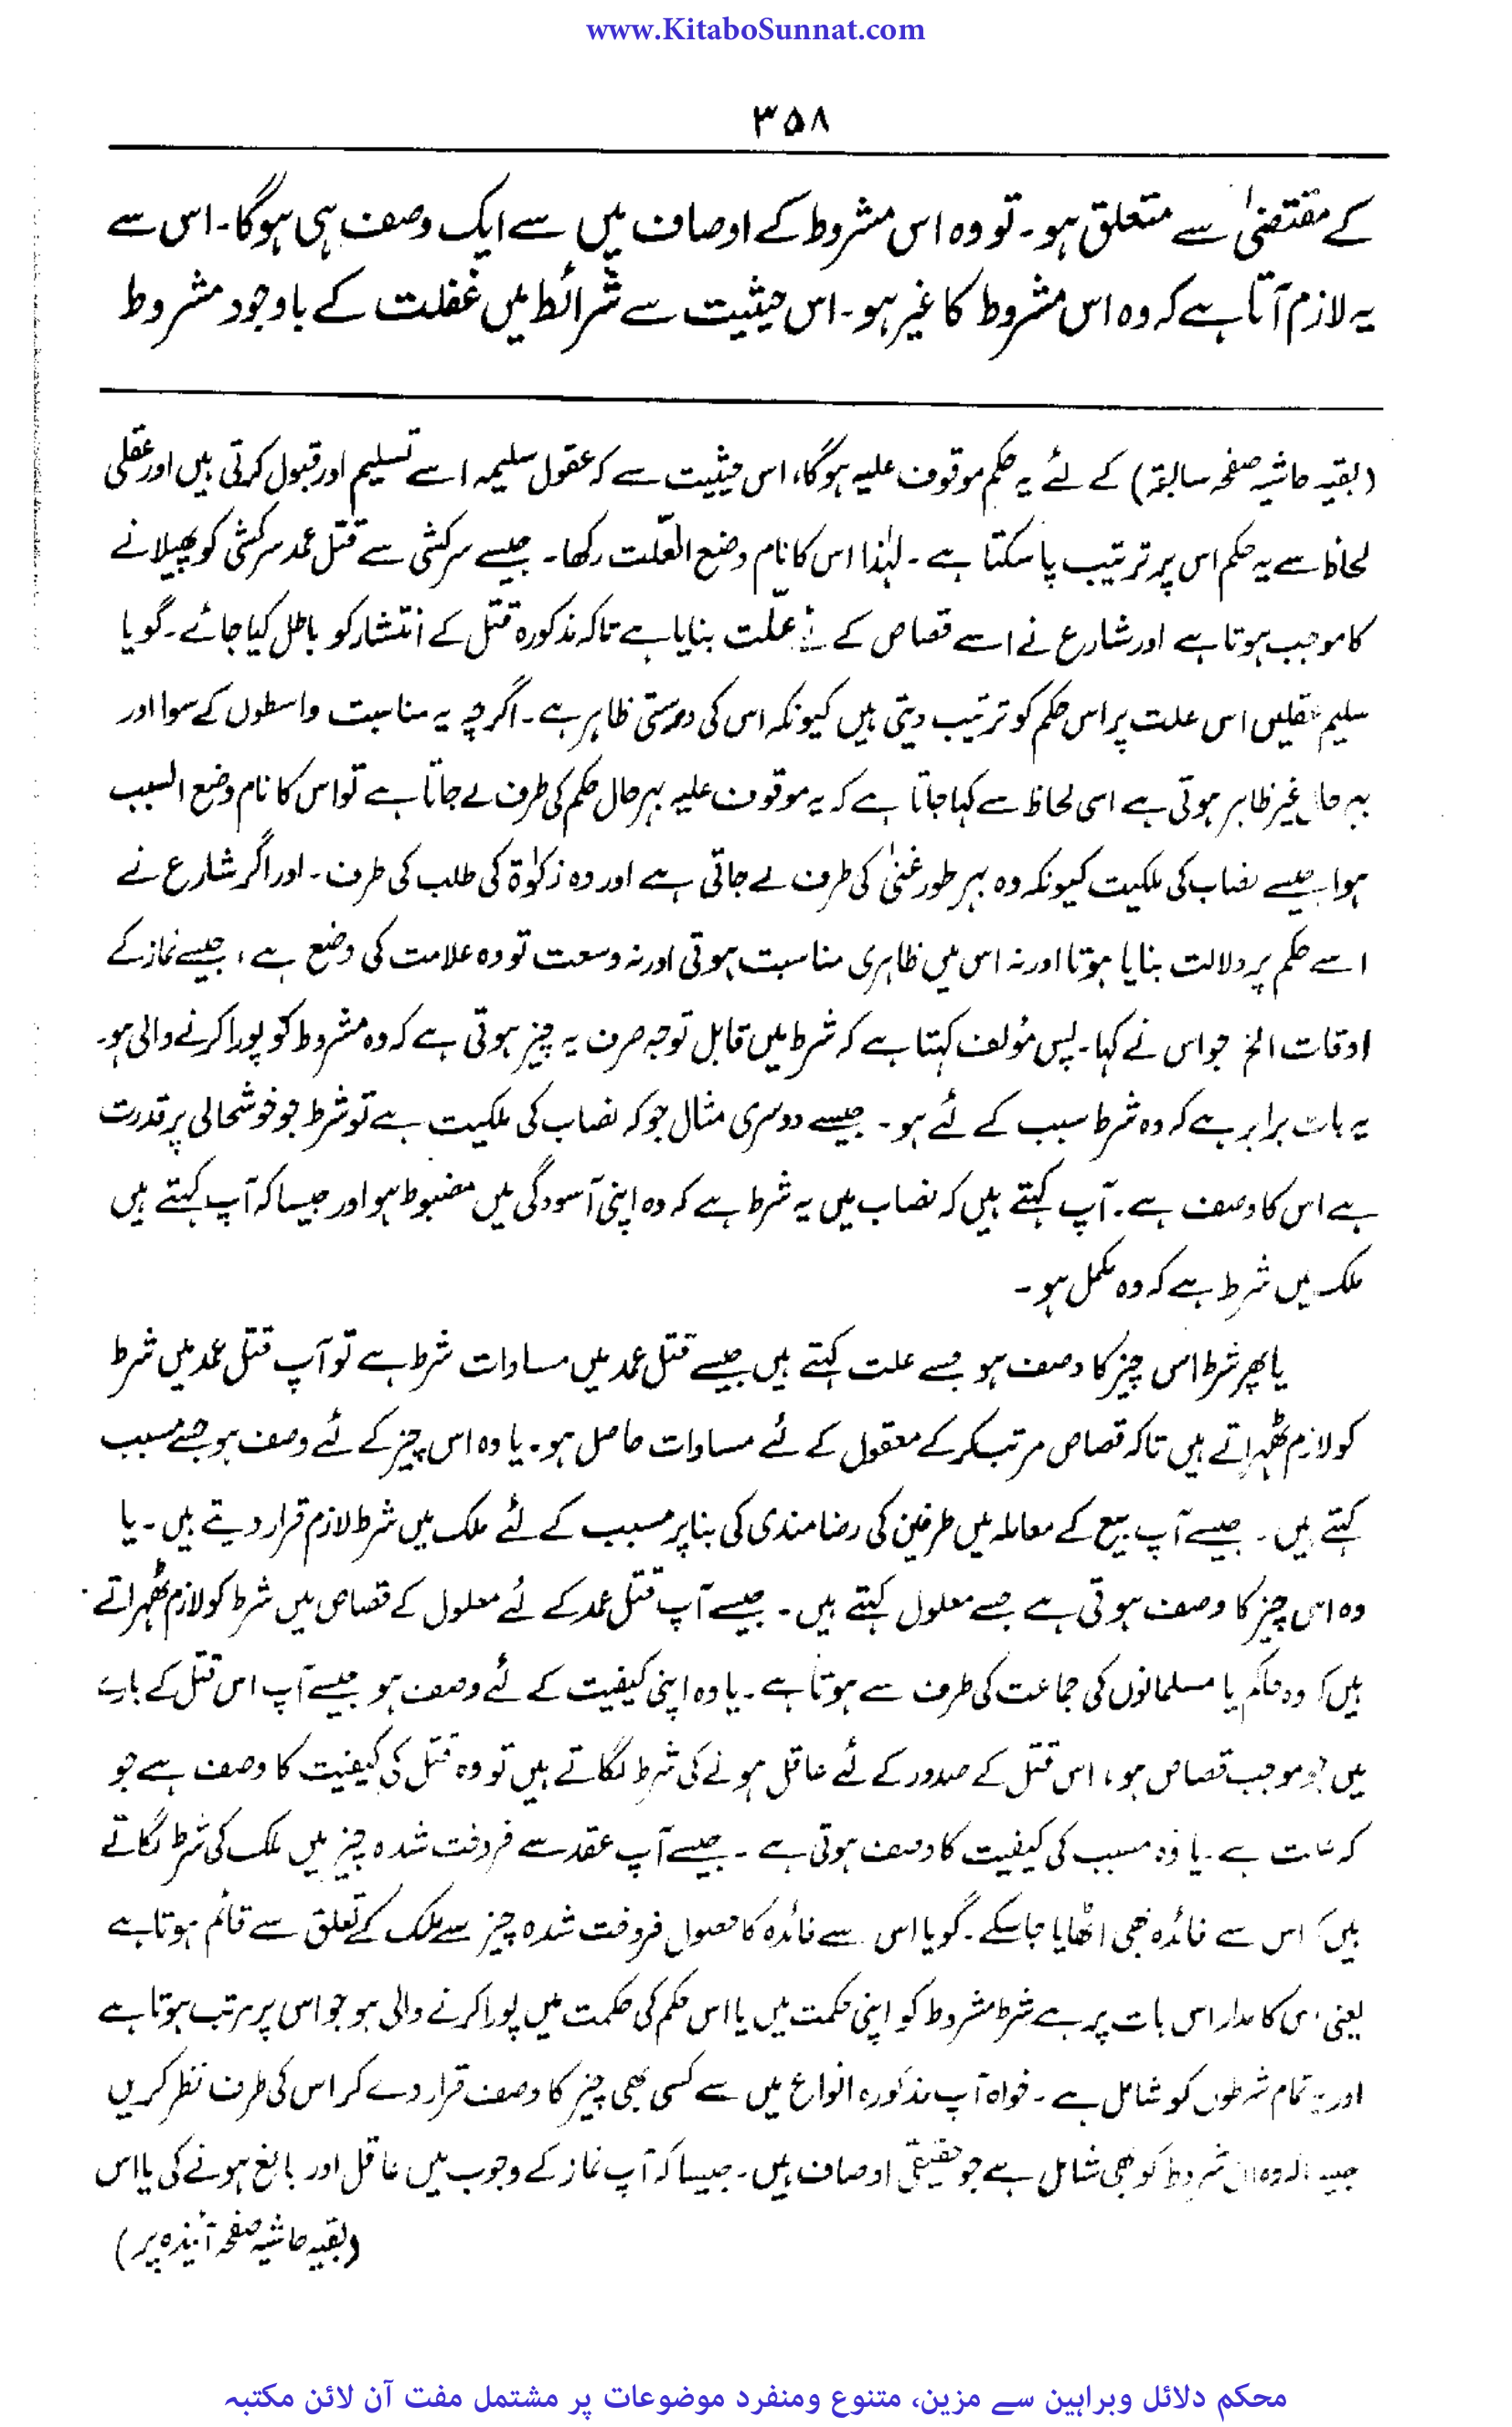 www.KitaboSunnat.com
۳۵۸
کے مقتضیٰ سے متعلق ہو۔ تو وہ اس مشروط کے اوصاف میں سے ایک وصف ہی ہوگا۔ اس سے
یہ لازم آتا ہے کہ وہ اس مشروط کا غیر ہو۔ اس حیثیت سے شرائط میں غفلت کے باوجود مشروط
(بقیہ حاشیہ صفحہ سابقہ) کے لئے یہ حکم موقوف علیہ ہوگا، اس حیثیت سے کہ عقول سلیمہ اسے تسلیم اور قبول کرتی ہیں اور عقلی
لحاظ سے یہ حکم اس پر ترتیب پا سکتا ہے۔ لہٰذا اس کا نام وضع العلّت رکھا۔ جیسے سرکشی سے قتل عمد سرکشی کو پھیلانے
کا موجب ہوتا ہے اور شارع نے اسے قصاص کے لئے علّت بنایا ہے تاکہ مذکورہ قتل کے انتشار کو باطل کیا جائے۔ گویا
سلیم عقلیں اس علت پر اس حکم کو ترتیب دیتی ہیں کیونکہ اس کی درستی ظاہر ہے۔ اگرچہ یہ مناسبت واسطوں کے سوا اور
بہر حال غیر ظاہر ہوتی ہے اسی لحاظ سے کہا جاتا ہے کہ یہ موقوف علیہ بہرحال حکم کی طرف لے جاتا ہے تو اس کا نام وضع السبب
ہوا جیسے نصاب کی ملکیت کیونکہ وہ بہر طور غنیٰ کی طرف لے جاتی ہے اور وہ زکوٰۃ کی طلب کی طرف۔ اور اگر شارع نے
اسے حکم پر دلالت بنایا ہوتا اور نہ اس میں ظاہری مناسبت ہوتی اور نہ وسعت تو وہ علامت کی وضع ہے، جیسے نماز کے
اوقات الخ جو اس نے کہا۔ پس مؤلف کہتا ہے کہ شرط میں قابل توجہ صرف یہ چیز ہوتی ہے کہ وہ مشروط کو پورا کرنے والی ہو۔
یہ بات برابر ہے کہ وہ شرط سبب کے لئے ہو۔ جیسے دوسری مثال جو کہ نصاب کی ملکیت ہے تو شرط جو خوشحالی پر قدرت
ہے اس کا وصف ہے۔ آپ کہتے ہیں کہ نصاب میں یہ شرط ہے کہ وہ اپنی آسودگی میں مضبوط ہو اور جیسا کہ آپ کہتے ہیں
ملک میں شرط ہے کہ وہ مکمل ہو۔
یا پھر شرط اس چیز کا وصف ہو جسے علت کہتے ہیں جیسے قتل عمد میں مساوات شرط ہے تو آپ قتل عمد میں شرط
کو لازم ٹھہراتے ہیں تاکہ قصاص مرتب کر کے معقول کے لئے مساوات حاصل ہو۔ یا وہ اس چیز کے لئے وصف ہو جسے مسبب
کہتے ہیں۔ جیسے آپ بیع کے معاملہ میں طرفین کی رضامندی کی بنا پر مسبب کے لئے ملک میں شرط لازم قرار دیتے ہیں۔ یا
وہ اس چیز کا وصف ہوتی ہے جسے معلول کہتے ہیں۔ جیسے آپ قتل عمد کے لئے معلول کے قصاص میں شرط کو لازم ٹھہراتے
ہیں کہ وہ حاکم یا مسلمانوں کی جماعت کی طرف سے ہوتا ہے۔ یا وہ اپنی کیفیت کے لئے وصف ہو جیسے آپ اس قتل کے بارے
میں جو موجب قصاص ہو، اس قتل کے صدور کے لئے عاقل ہونے کی شرط لگاتے ہیں تو وہ قتل کی کیفیت کا وصف ہے جو
کہ علت ہے۔ یا وہ مسبب کی کیفیت کا وصف ہوتی ہے۔ جیسے آپ عقد سے فروخت شدہ چیز میں ملک کی شرط لگاتے
ہیں کہ اس سے فائدہ بھی اٹھایا جا سکے۔ گویا اس سے فائدہ کا حصول فروخت شدہ چیز سے ملک کے تعلق سے قائم ہوتا ہے
یعنی اس کا مدار اس بات پر ہے شرط مشروط کو اپنی حکمت میں یا اس حکم کی حکمت میں پورا کرنے والی ہو جو اس پر مرتب ہوتا ہے
اور یہ تمام شرطوں کو شامل ہے۔ خواہ آپ مذکورہ انواع میں سے کسی بھی چیز کا وصف قرار دے کر اس کی طرف نظر کریں
جیسا کہ وہ ان شروط کو بھی شامل ہے جو حقیقی اوصاف ہیں۔ جیسا کہ آپ نماز کے وجوب میں عاقل اور بالغ ہونے کی یا اس
(بقیہ حاشیہ صفحہ آئندہ پر)
محکم دلائل وبراہین سے مزین، متنوع ومنفرد موضوعات پر مشتمل مفت آن لائن مکتبہ